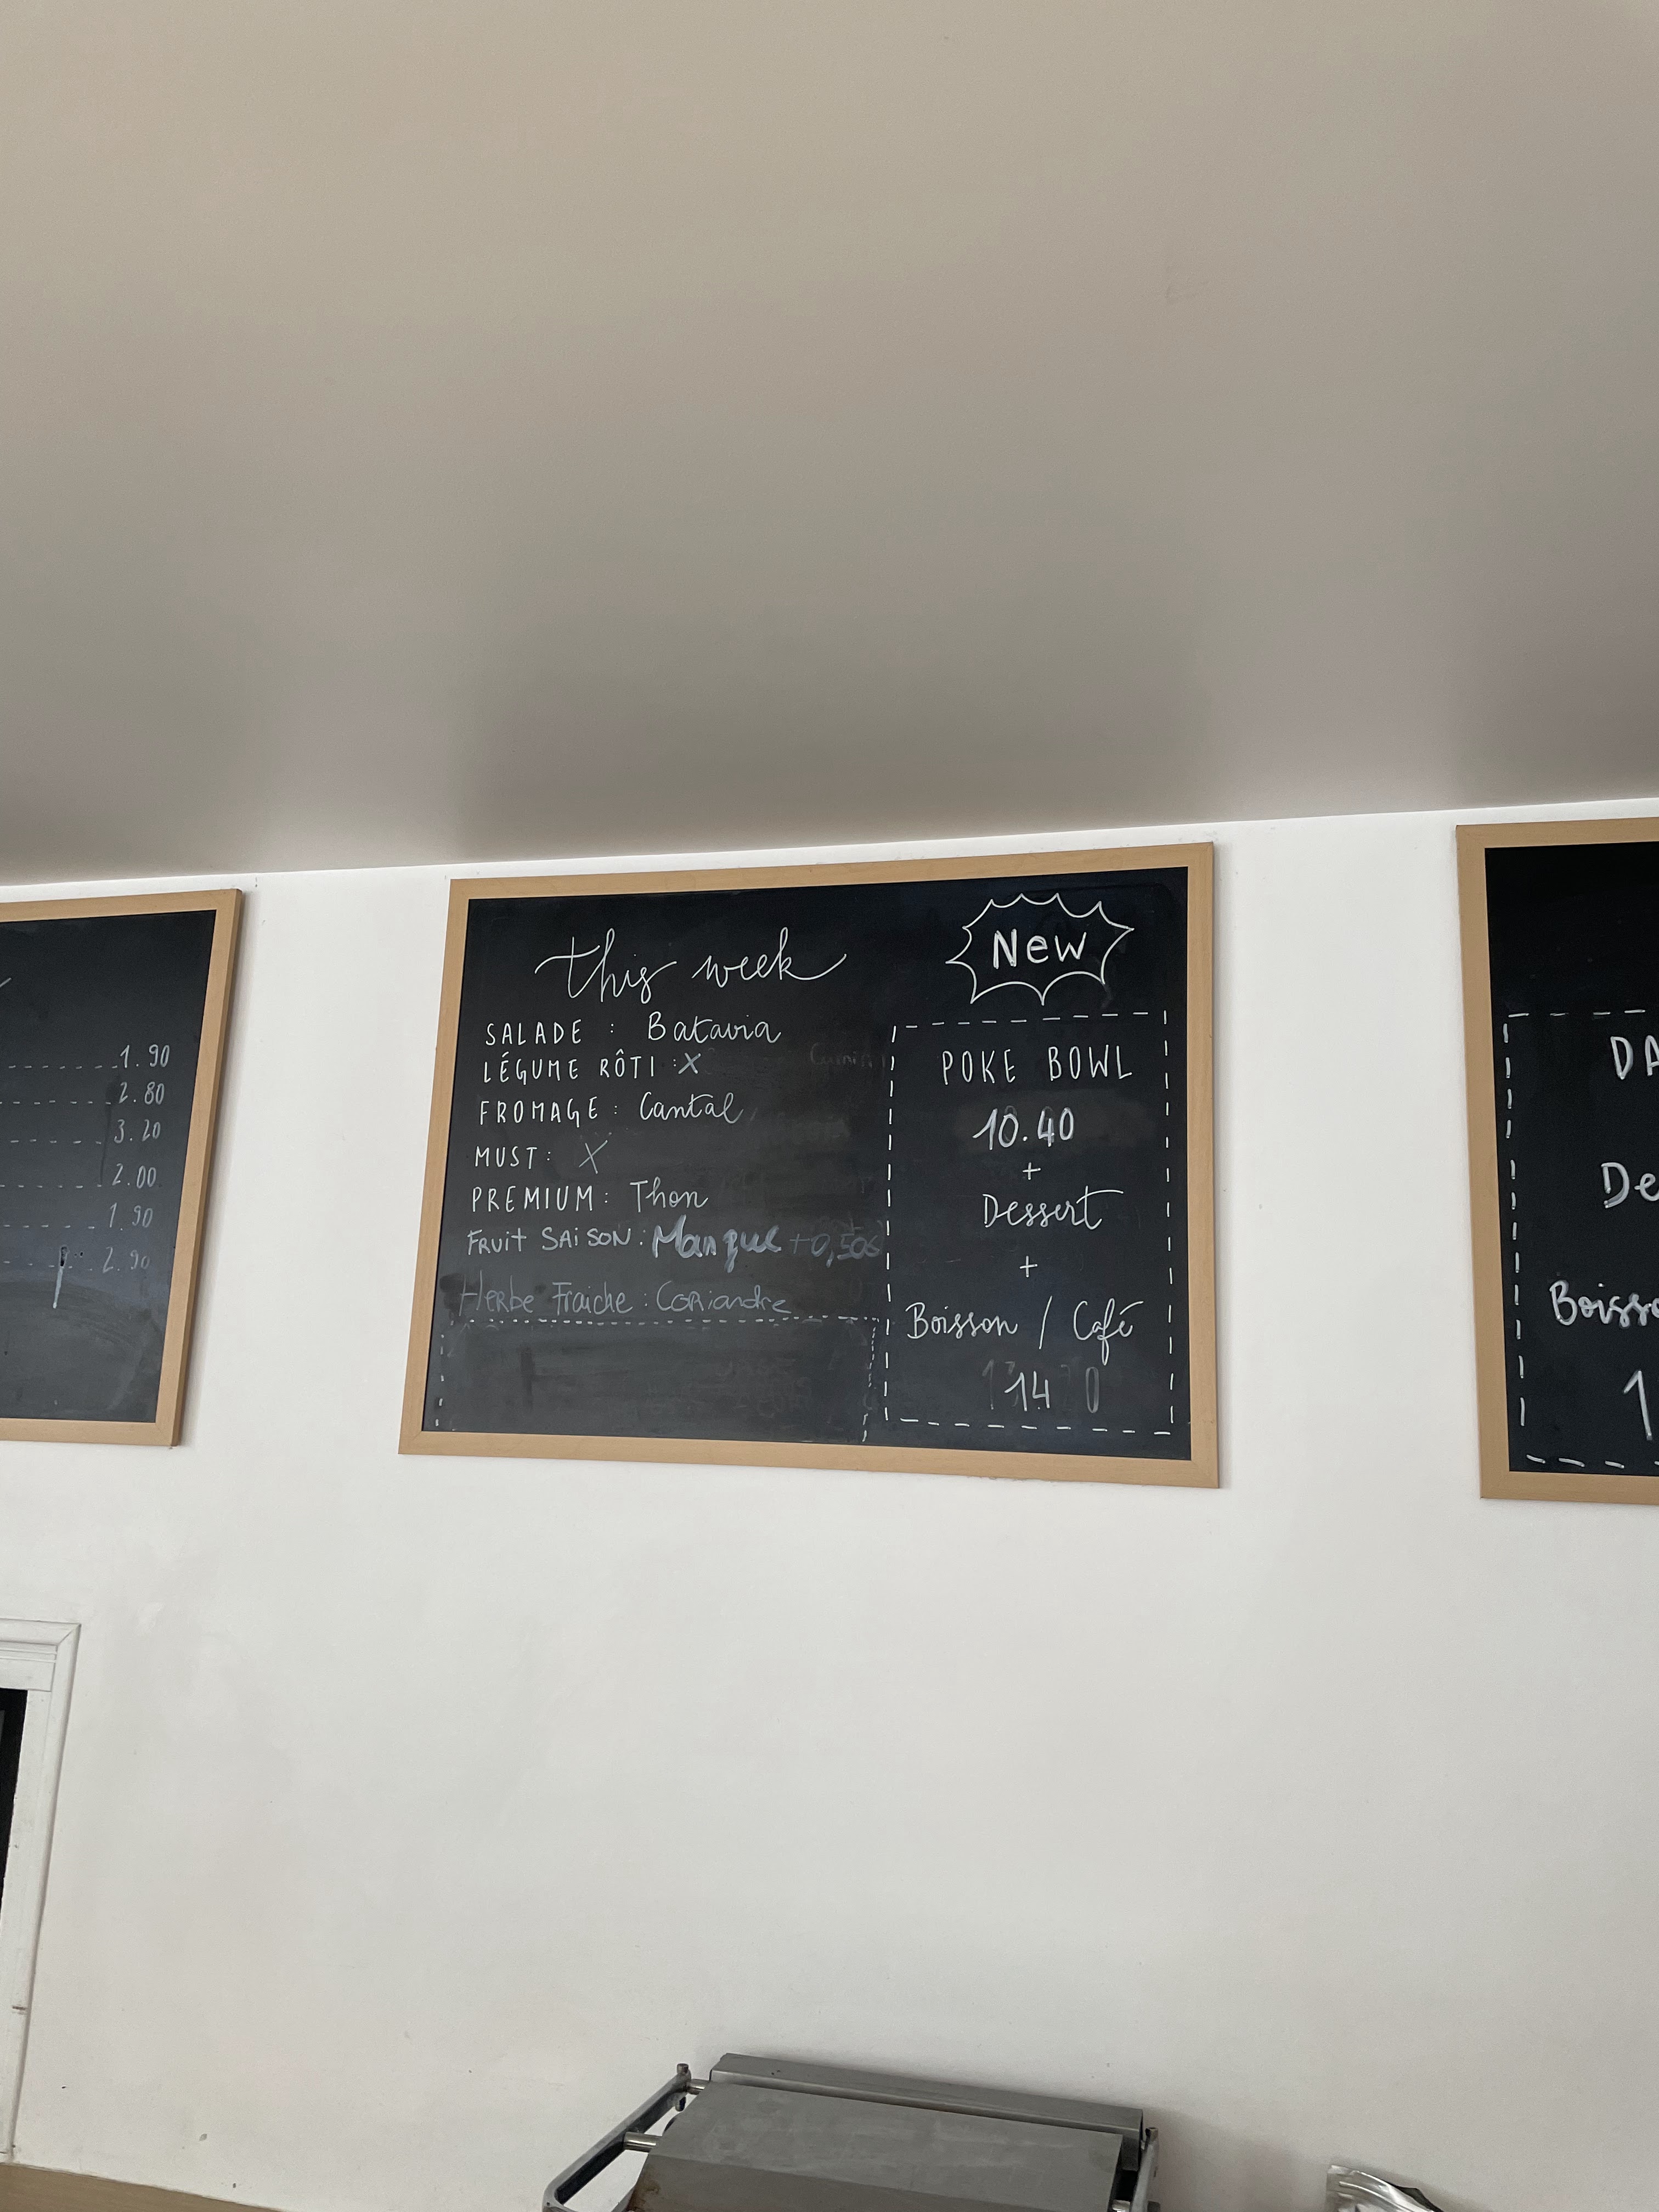 1.90
2.80
3.20
2.00
1.90
2.90
this week
SALADE : Batavia
LÉGUME RÔTI : X
FROMAGE : Cantal
MUST : X
PREMIUM : Thon
FRUIT SAISON : Mangue +0,50€
Herbe Fraiche : Coriandre
New
POKE BOWL
10.40
+
Dessert
+
Boisson / Café
14
DA
De
Boisso
1